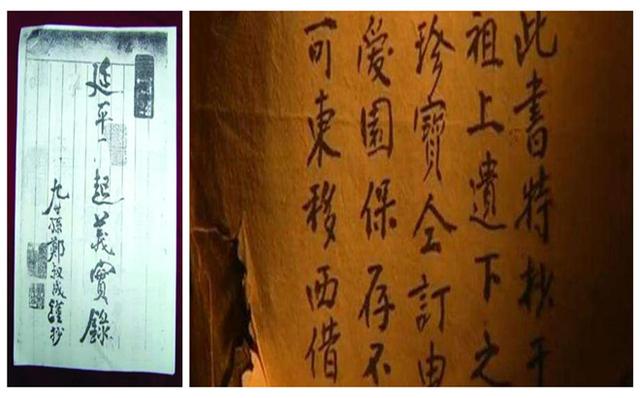 延平起義實錄
九世孫鄭成謹抄
此書特抄于
祖上遺下之
珍寶全訂由
愛園保存不
可東移西借